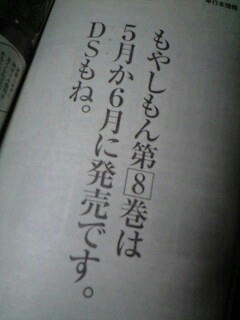 単行本情報
もやしもん第8巻は
5月か6月に発売です。
DSもね。